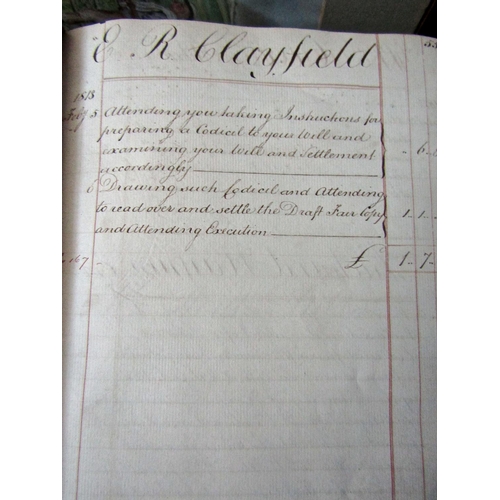 E R Clayfield
1818
Feby 5 Attending you taking Instructions for
preparing a Codicil to your Will and
examining your Will and Settlement
accordingly - 6 -
6 Drawing such Codicil and Attending
to read over and settle the Draft Fair Copy 1 - 1 -
and Attending Execution
£ 1 - 7 -